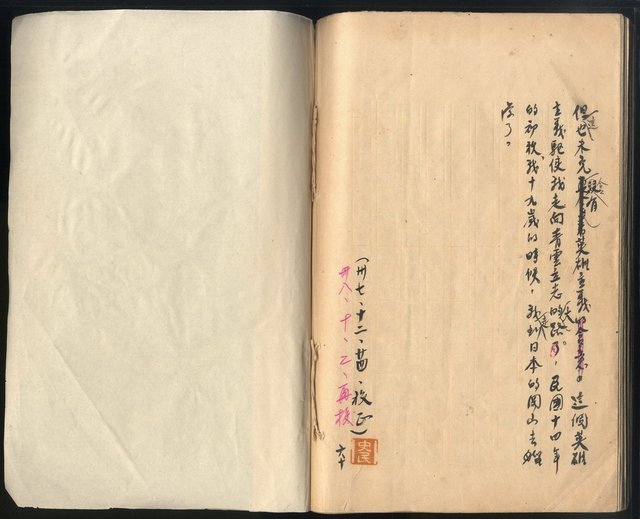 但也未免含有英雄主義。這個英雄
主義駛使我走向青雲立志的路。民國十四年
的初秋、我十九歲的時候，我到日本的岡山去留
學了。
（卅七、十二、廿四、校正）
卅八、十、二、再校
史民
六十